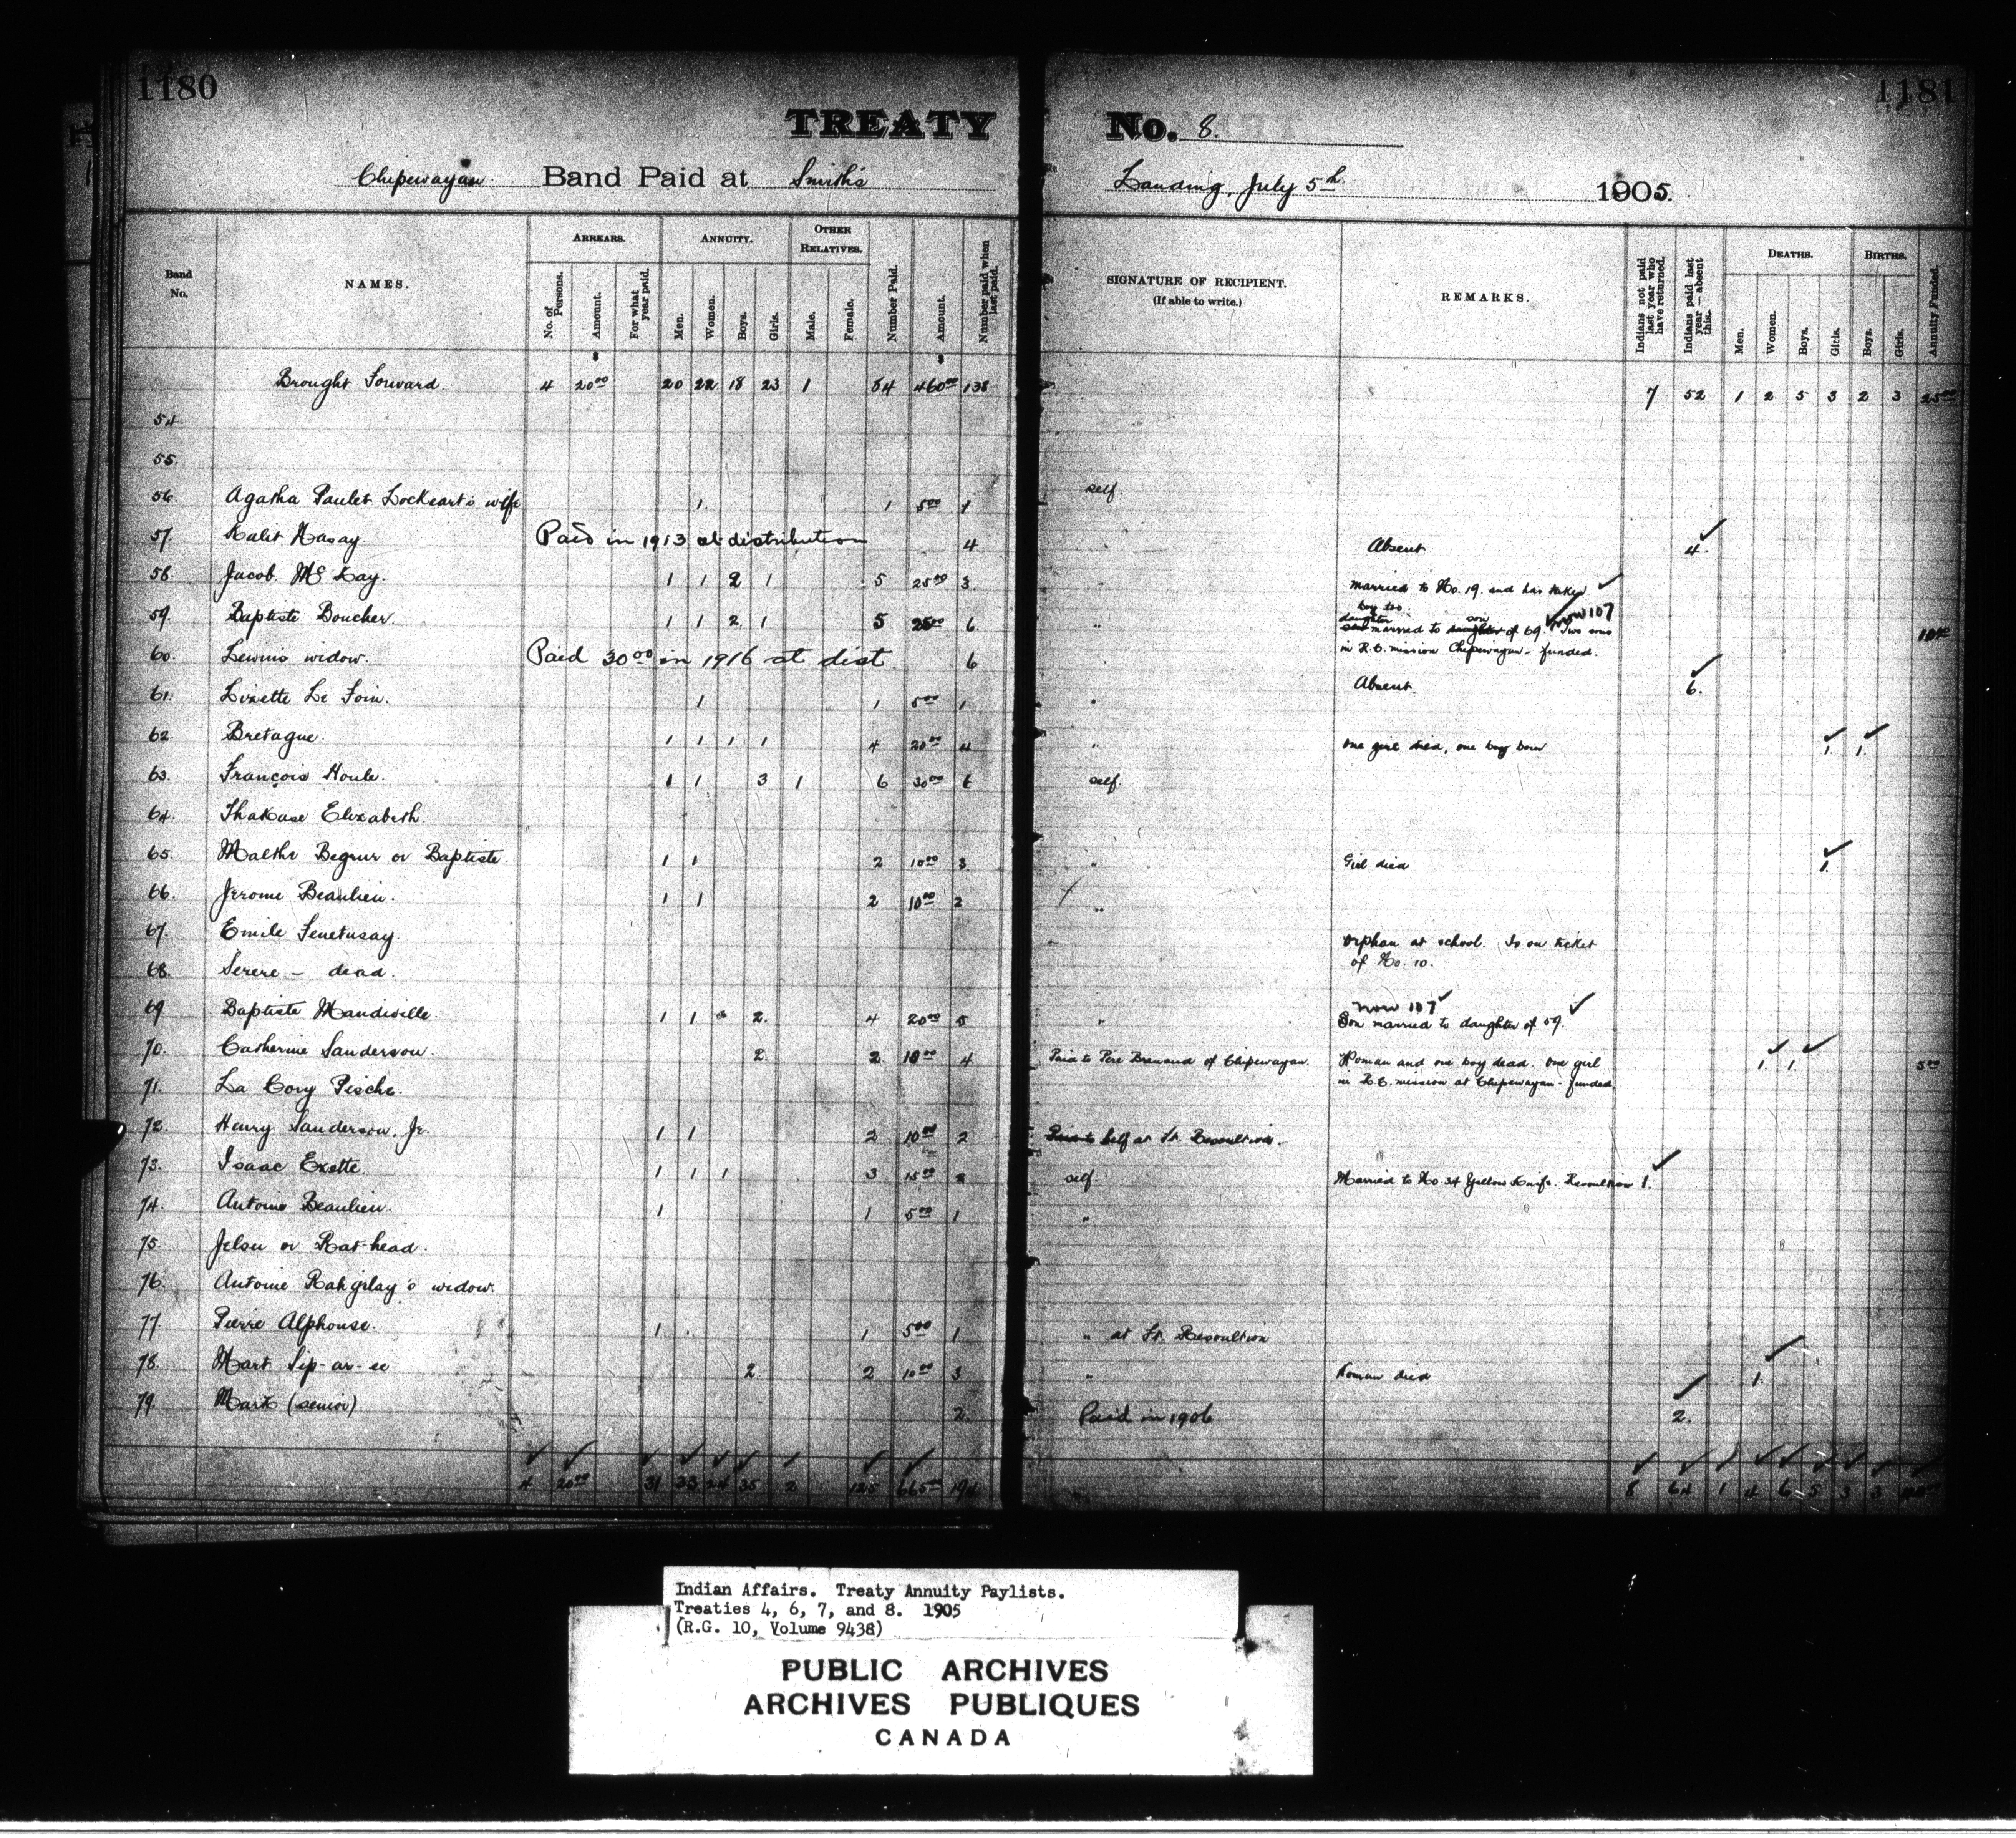 1180
1181
TREATY No. 8.
Chipewayan Band Paid at Smith's Landing, July 5th 1905.
Band No.
NAMES.
ARREARS.
No. of Persons.
Amount.
For what year paid.
ANNUITY.
Men.
Women.
Boys.
Girls.
OTHER RELATIVES.
Male.
Female.
Number Paid.
Amount.
Number paid when last paid.
SIGNATURE OF RECIPIENT.
(If able to write.)
REMARKS.
Indians not paid last year who have returned.
Indians paid last year — absent this.
DEATHS.
Men.
Women.
Boys.
Girls.
BIRTHS.
Boys.
Girls.
Annuity Funded.
Brought Forward 4 20 00 20 22 18 23 1 84 460 00 138 7 52 1 2 5 3 2 3 25 00
54.
55.
56. Agatha Paulet Lockeart's wife 1 1 5 00 1 self
57. Kalet Hasay Paid in 1913 at distribution 4 Absent 4.
58. Jacob McKay. 1 1 2 1 5 25 00 3 " married to No. 19. and has taken boy too.
59. Baptiste Boucher. 1 1 2 1 5 25 00 6 " daughter married to son of 69. now 107 Two sons
in R.C. mission Chipewayan - funded. 10 00
60. Lewis widow. Paid 30 00 in 1916 at dist 6 Absent. 6.
61. Lizette Le Foin. 1 1 5 00 1 "
62. Bretague. 1 1 1 1 4 20 00 4 " One girl died, one boy born 1. 1.
63. François Houle. 1 1 3 1 6 30 00 6 self.
64. Thakase Elizabeth.
65. Malthe Begrur or Baptiste 1 1 2 10 00 3 " Girl died 1.
66. Jerome Beaulieu. 1 1 2 10 00 2 "
67. Emile Tenetusay. " Orphan at school. Is on ticket
of No. 10.
68. Serere - dead.
69. Baptiste Mandiville. 1 1 2. 4 20 00 5 " now 107
Son married to daughter of 59.
70. Catherine Sanderson. 2 2 10 00 4 Paid to Pere of Chipewayan. Woman and one boy dead. One girl 1. 1. 5 00
in R.C. mission at Chipewayan - funded.
71. La Cory Pische.
72. Henry Sanderson. Jr. 1 1 2 10 00 2 Paid to Self at Ft. Resoultion.
73. Isaac Exette. 1 1 1 3 15 00 2 self. Married to No 34 Yellow Knife. Resoultion 1.
74. Antoine Beaulieu. 1 1 5 00 1 "
75. Jelsu or Rat-head.
76. Antoine Rahgilay's widow.
77. Pierre Alphonse. 1 1 5 00 1 " at Ft. Resoultion
78. Mart Sip-ar-ee 2 2 10 00 3 " Woman died 1.
79. Mark (senior) 2. Paid in 1906 2.
4 20 00 31 33 24 35 2 125 665 00 194 8 64 1 4 6 5 3 3
Indian Affairs. Treaty Annuity Paylists.
Treaties 4, 6, 7, and 8. 1905
(R.G. 10, Volume 9438)
PUBLIC ARCHIVES
ARCHIVES PUBLIQUES
CANADA